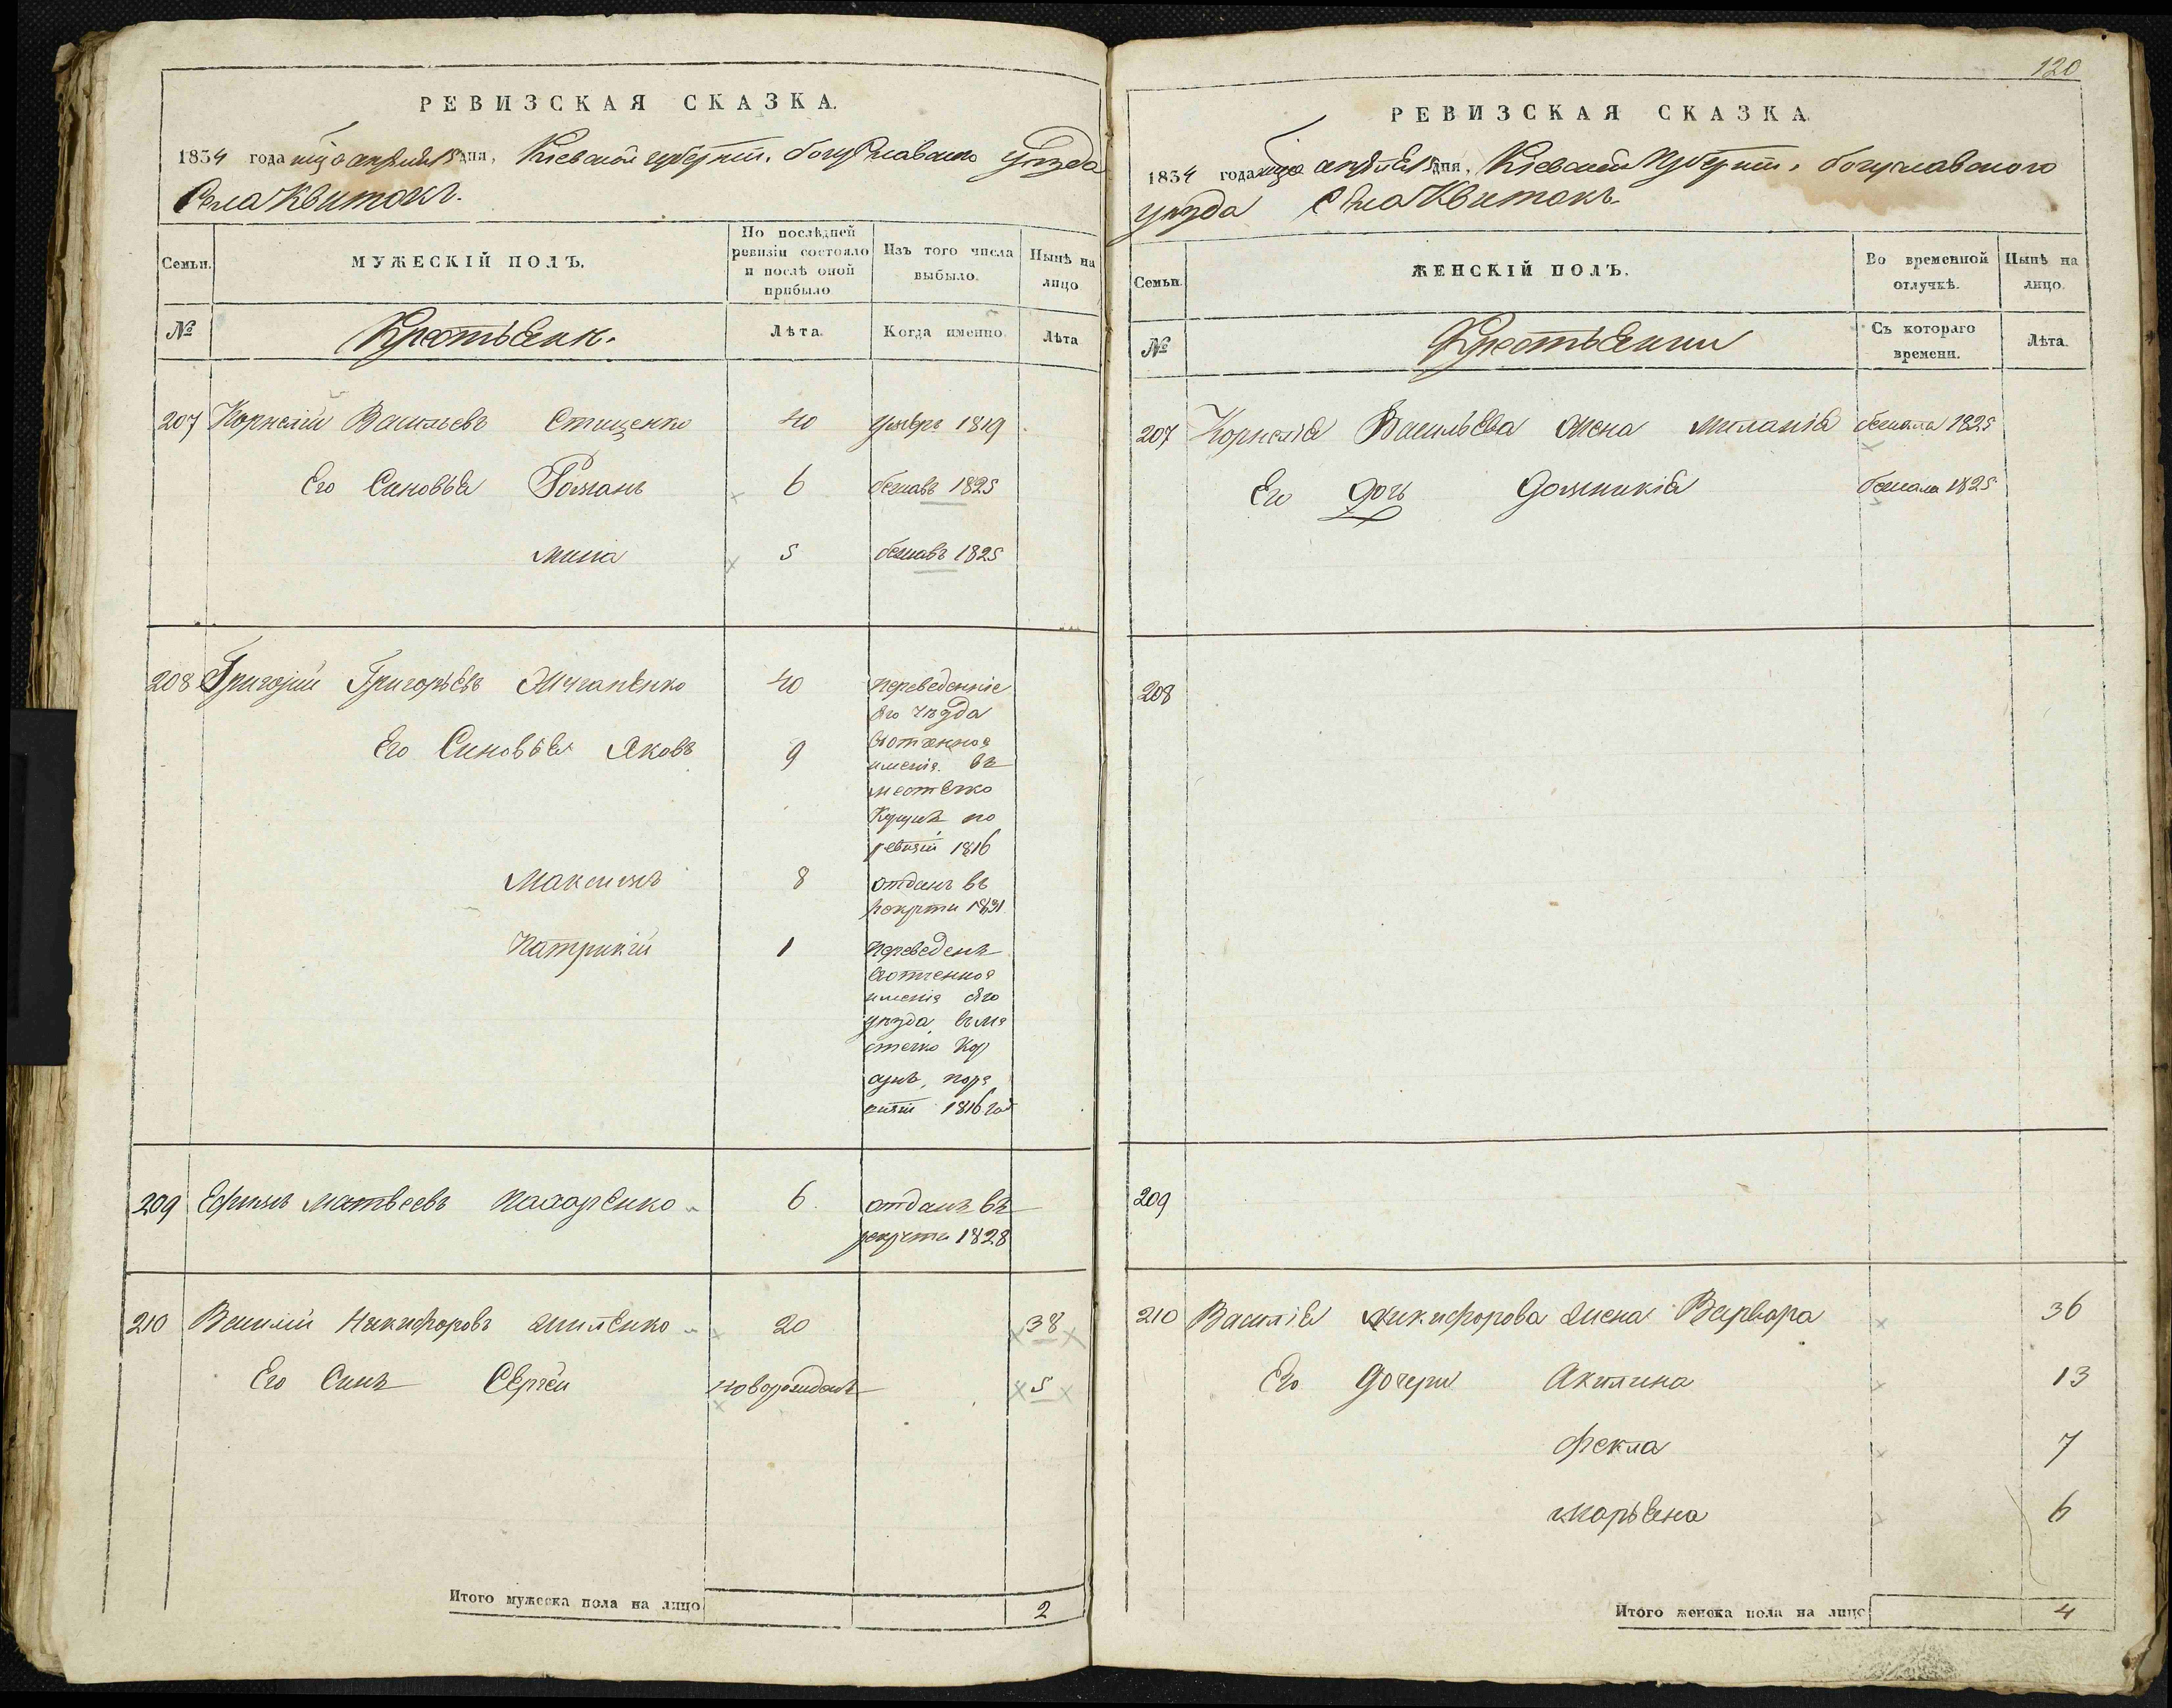 РЕВИЗСКАЯ СКАЗКА.
1834 года апреля 15 дня, Кіевской губерніи, богуславского уѣзда
Села Квитокъ.
Семьи.
МУЖЕСКІЙ ПОЛЪ.
По послѣдней ревизіи состояло и послѣ оной прибыло
Изъ того числа выбыло.
Нынѣ на лицо
№
Крестьяне.
Лѣта.
Когда именно.
Лѣта
207 Корнелій Васильевъ Стищенко 40 умеръ 1819
Его Сыновья Романъ 6 бежавъ 1825
Мина 5 бежавъ 1825
208 Григорій Григорьевъ 40 переведенніе
его уѣзда
Его Сыновья Яковъ 9
именія въ
местечко
по
ревизіи 1816
Максимъ 8 отданъ въ
рекруты 1831
Патрикій 1 переведенъ
именія его
уѣзда въ ме
стечко Кор
сунь, по ре
визіи 1816 год
209 Ефимъ Матвеевъ Пахаренко 6 отданъ въ
рекруты 1828
210 Василій Никифоровъ 20 38
Его Сынъ Сергей новорожданъ 5
Итого мужеска пола на лицо 2
120
РЕВИЗСКАЯ СКАЗКА.
1834 года апреля 15 дня, Кіевской Губерніи, богуславского
уѣзда Села Квитокъ.
Семьи.
ЖЕНСКІЙ ПОЛЪ.
Во временной отлучкѣ.
Нынѣ на лицо.
№
Крестьянки
Съ котораго времени.
Лѣта.
207 Корнелія Васильева жена Миланія бежала 1825
Его дочь Домникія бежала 1825
208
209
210 Василія Никифорова жена Варвара 36
Его дочери Акилина 13
Фекла 7
Марьяна 6
Итого женска пола на лицо 4